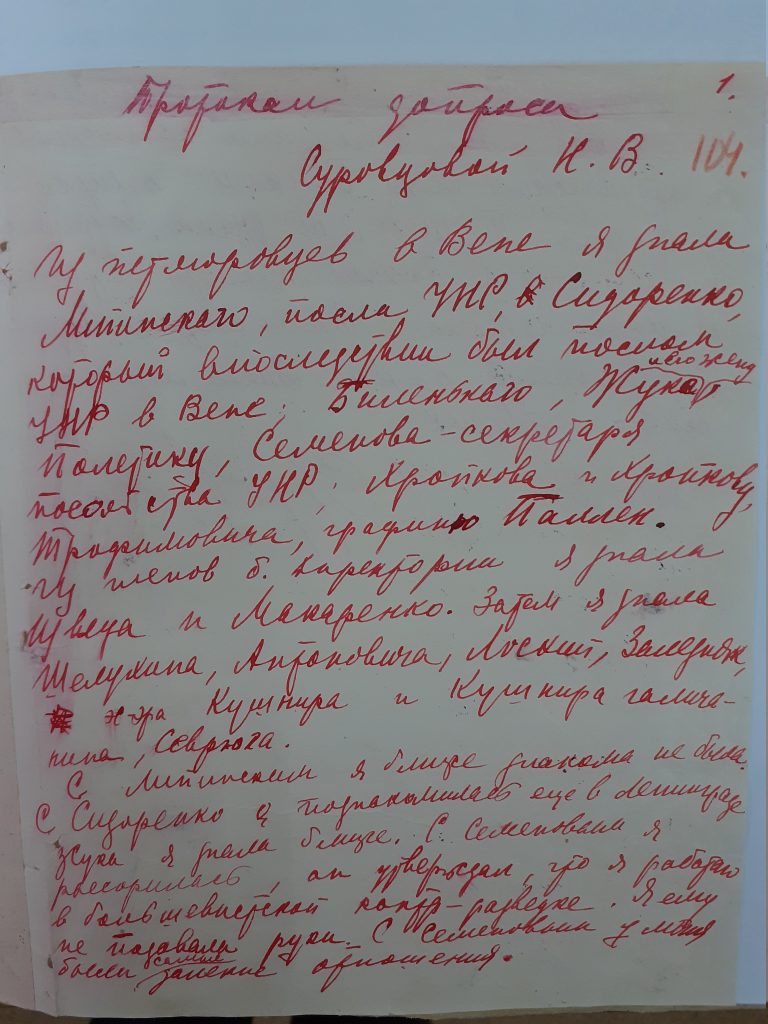 1.
Протокол допроса
Суровцовой Н. В. 104.
Из петлюровцев в Вене я знала
Липинскаго, посла УНР, Сидоренко,
который впоследствии был послом
УНР в Вене, Биленькаго, Жука и его жену,
Полетику, Семенова-секретаря
посольства УНР, Хропкова и Хропкову,
Трофимовича, графиню Паллен.
Из членов б. директории я знала
Швеца и Макаренко. Затем я знала
Шелухина, Антоновича, Лоский,
Кушнира и Кушнира галича-
нина, Севрюга.
С Липинским я ближе знакома не была.
С Сидоренко я познакомилась еще в Ленинграде
Жука я знала ближе. С Семеновым я
рассорилась, он утверждал, что я работаю
в большевистской контр-разведке. Я ему
не подавала руки. С Семеновым у меня
были отношения.